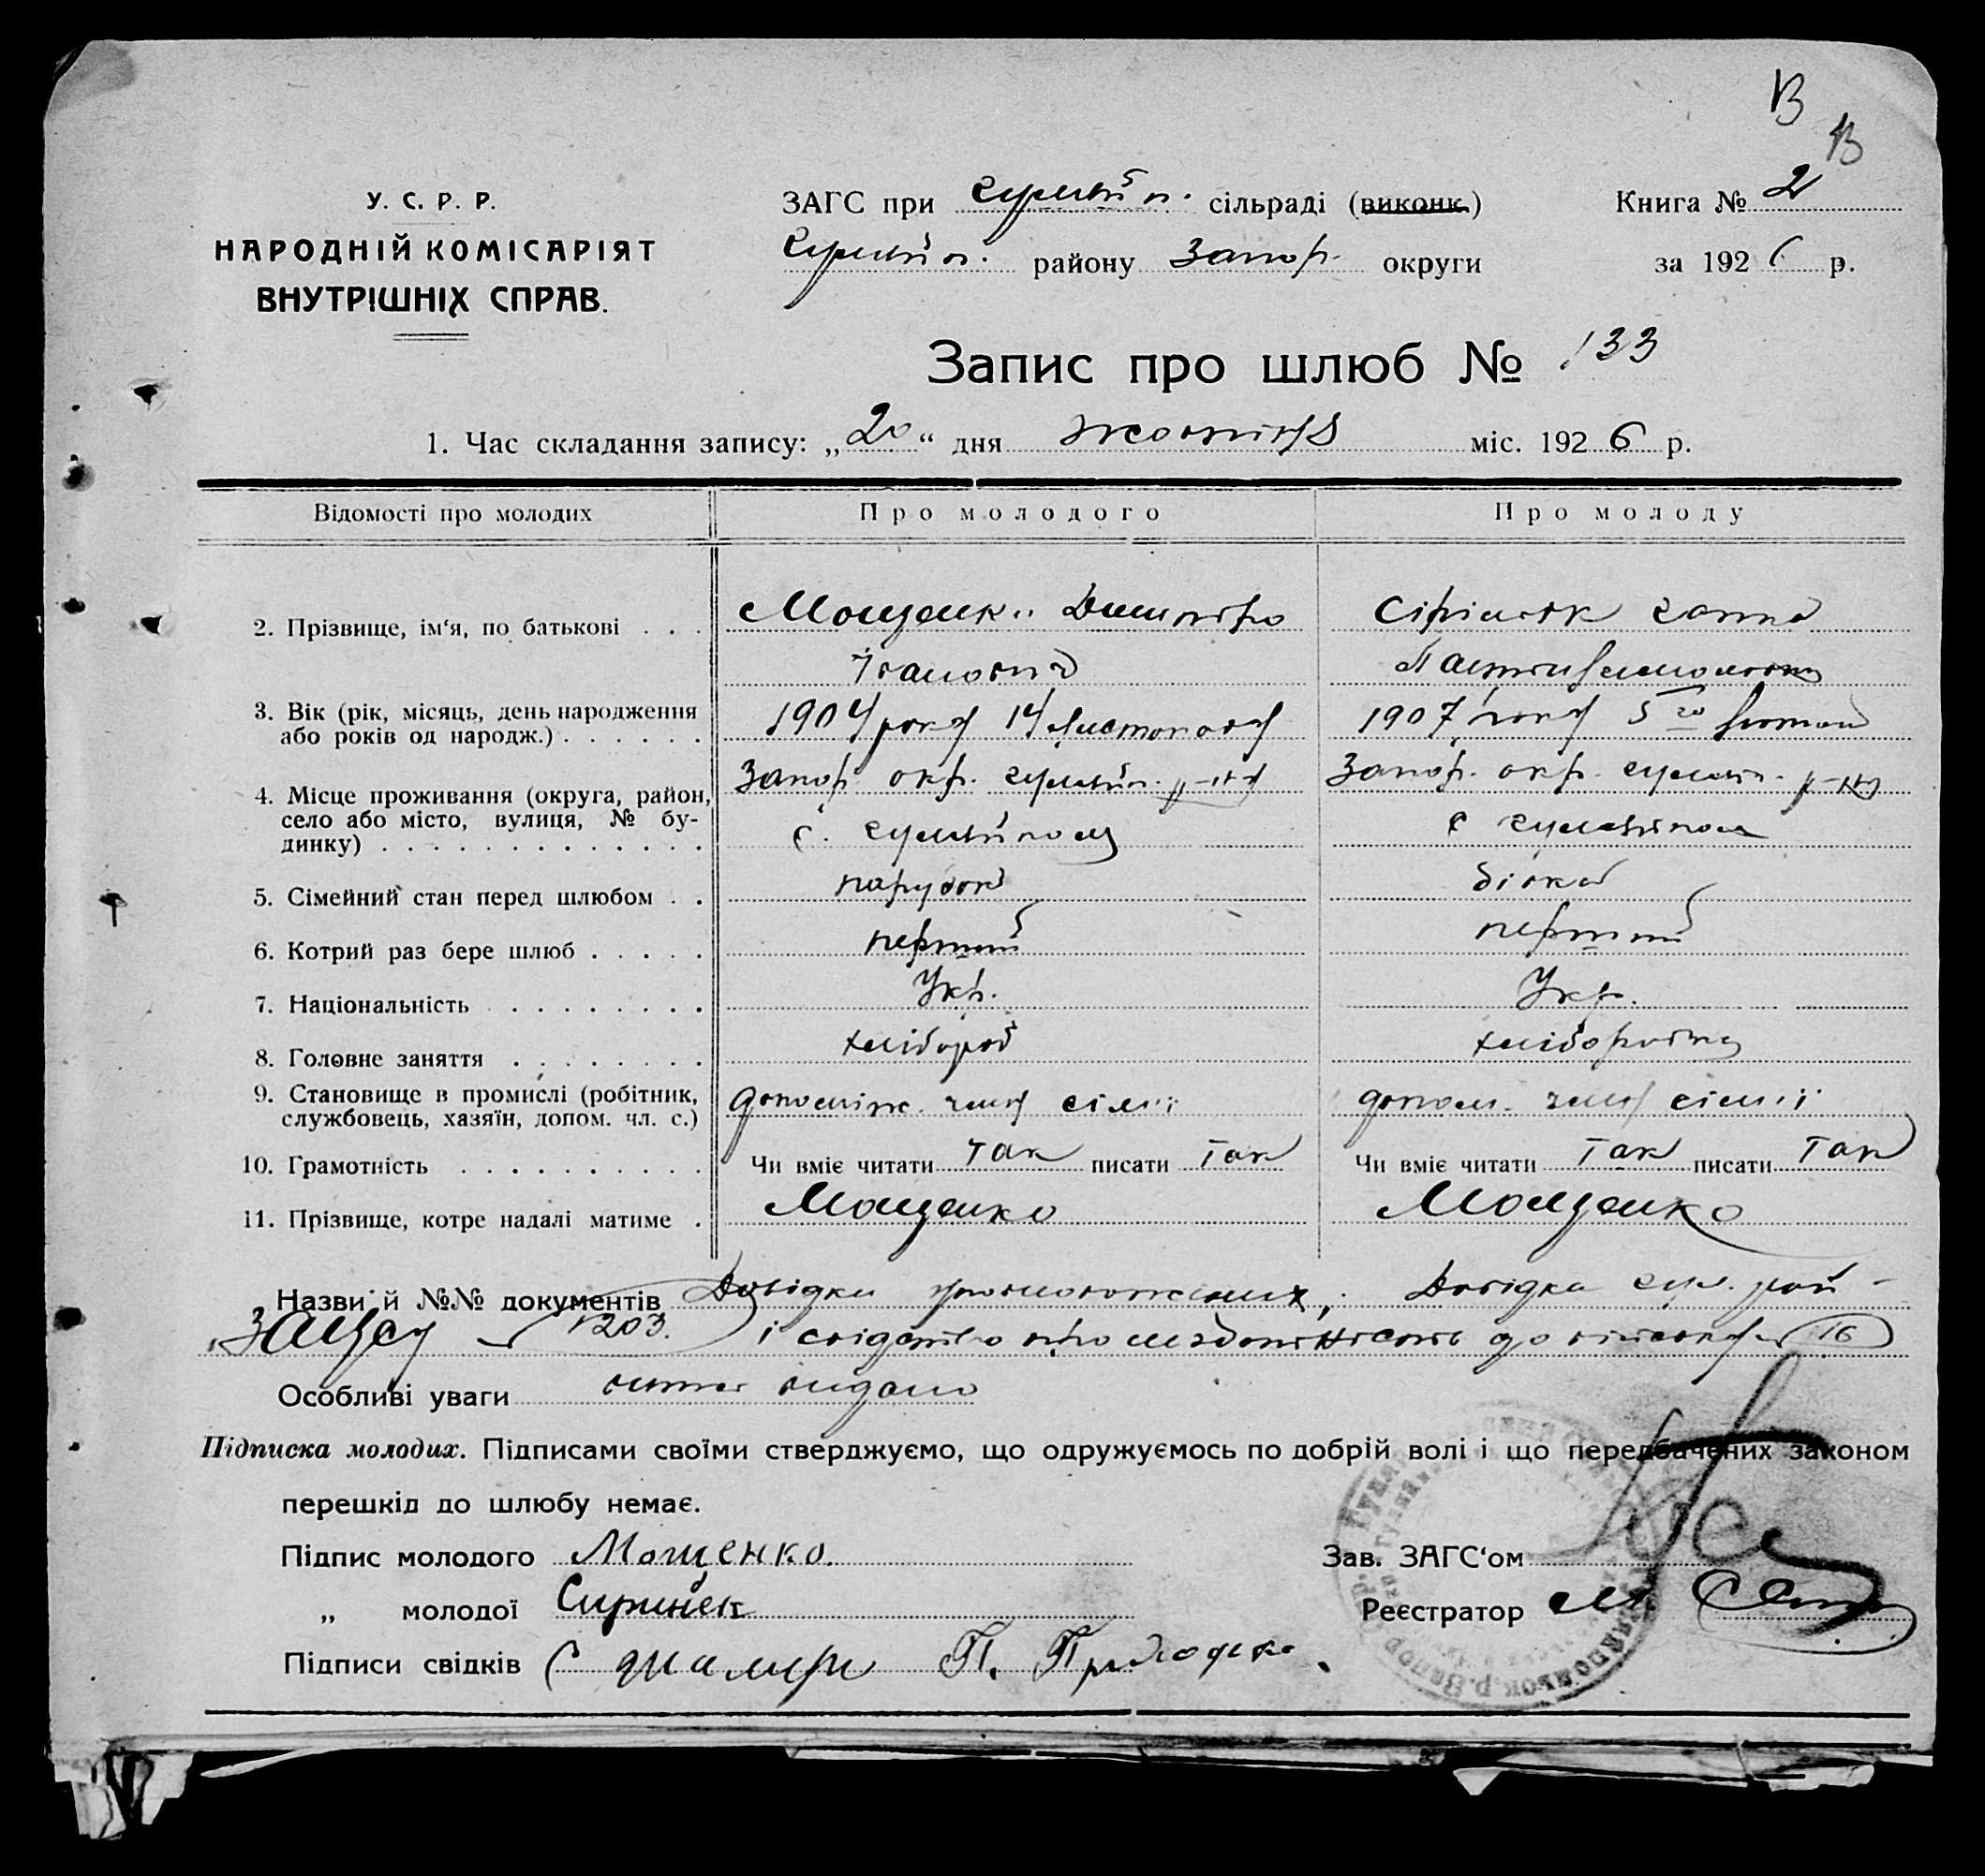 В
В
У. С. Р. Р.
НАРОДНІЙ КОМІСАРІЯТ
ВНУТРІШНІХ СПРАВ.
ЗАГС при Гуляйп. сільраді (виконк.)
Гуляйп. району Запор. округи
Книга № 2
за 1926 р.
Запис про шлюб № 133
1. Час складання запису: „20“ дня жовтня міс. 1926 р.
Відомості про молодих Про молодого Про молоду
2. Прізвище, ім‘я, по батькові . . . Мощенко Дмитро Сірінок Ганна
Іванович Пантелемоновна
3. Вік (рік, місяць, день народження
або років од народж.) . . . . . . 1904 року 14 листопада 1907 року 5го лютого
4. Місце проживання (округа, район,
село або місто, вулиця, № бу-
динку) . . . . . . . . . . . . . .
Запор. окр. Гуляйп. р-ну Запор. окр. Гуляйп. р-ну
с. Гуляйполе с Гуляйполе
5. Сімейний стан перед шлюбом . . парубок дівка
6. Котрий раз бере шлюб . . . . . перший перший
7. Національність . . . . . . . . . Укр. Укр.
8. Головне заняття . . . . . . . . хлібороб хліборобка
9. Становище в промислі (робітник,
службовець, хазяїн, допом. чл. с.) допоміж. член сім'ї допом. член сім'ї
10. Грамотність . . . . . . . . . . Чи вміє читати так писати так Чи вміє читати так писати так
11. Прізвище, котре надалі матиме . Мощенко Мощенко
Назви й №№ документів Довідки Довідка гул. рай-
Загсу 1203. і свідоцтво про нездатність до війська 16
Особливі уваги витяг видано
Підписка молодих. Підписами своїми стверджуємо, що одружуємось по добрій волі і що передбачених законом
перешкід до шлюбу немає.
Підпис молодого Мощенко.
„ молодої Сиринек
Підписи свідків П. Приходько.
Зав. ЗАГС‘ом
Реєстратор